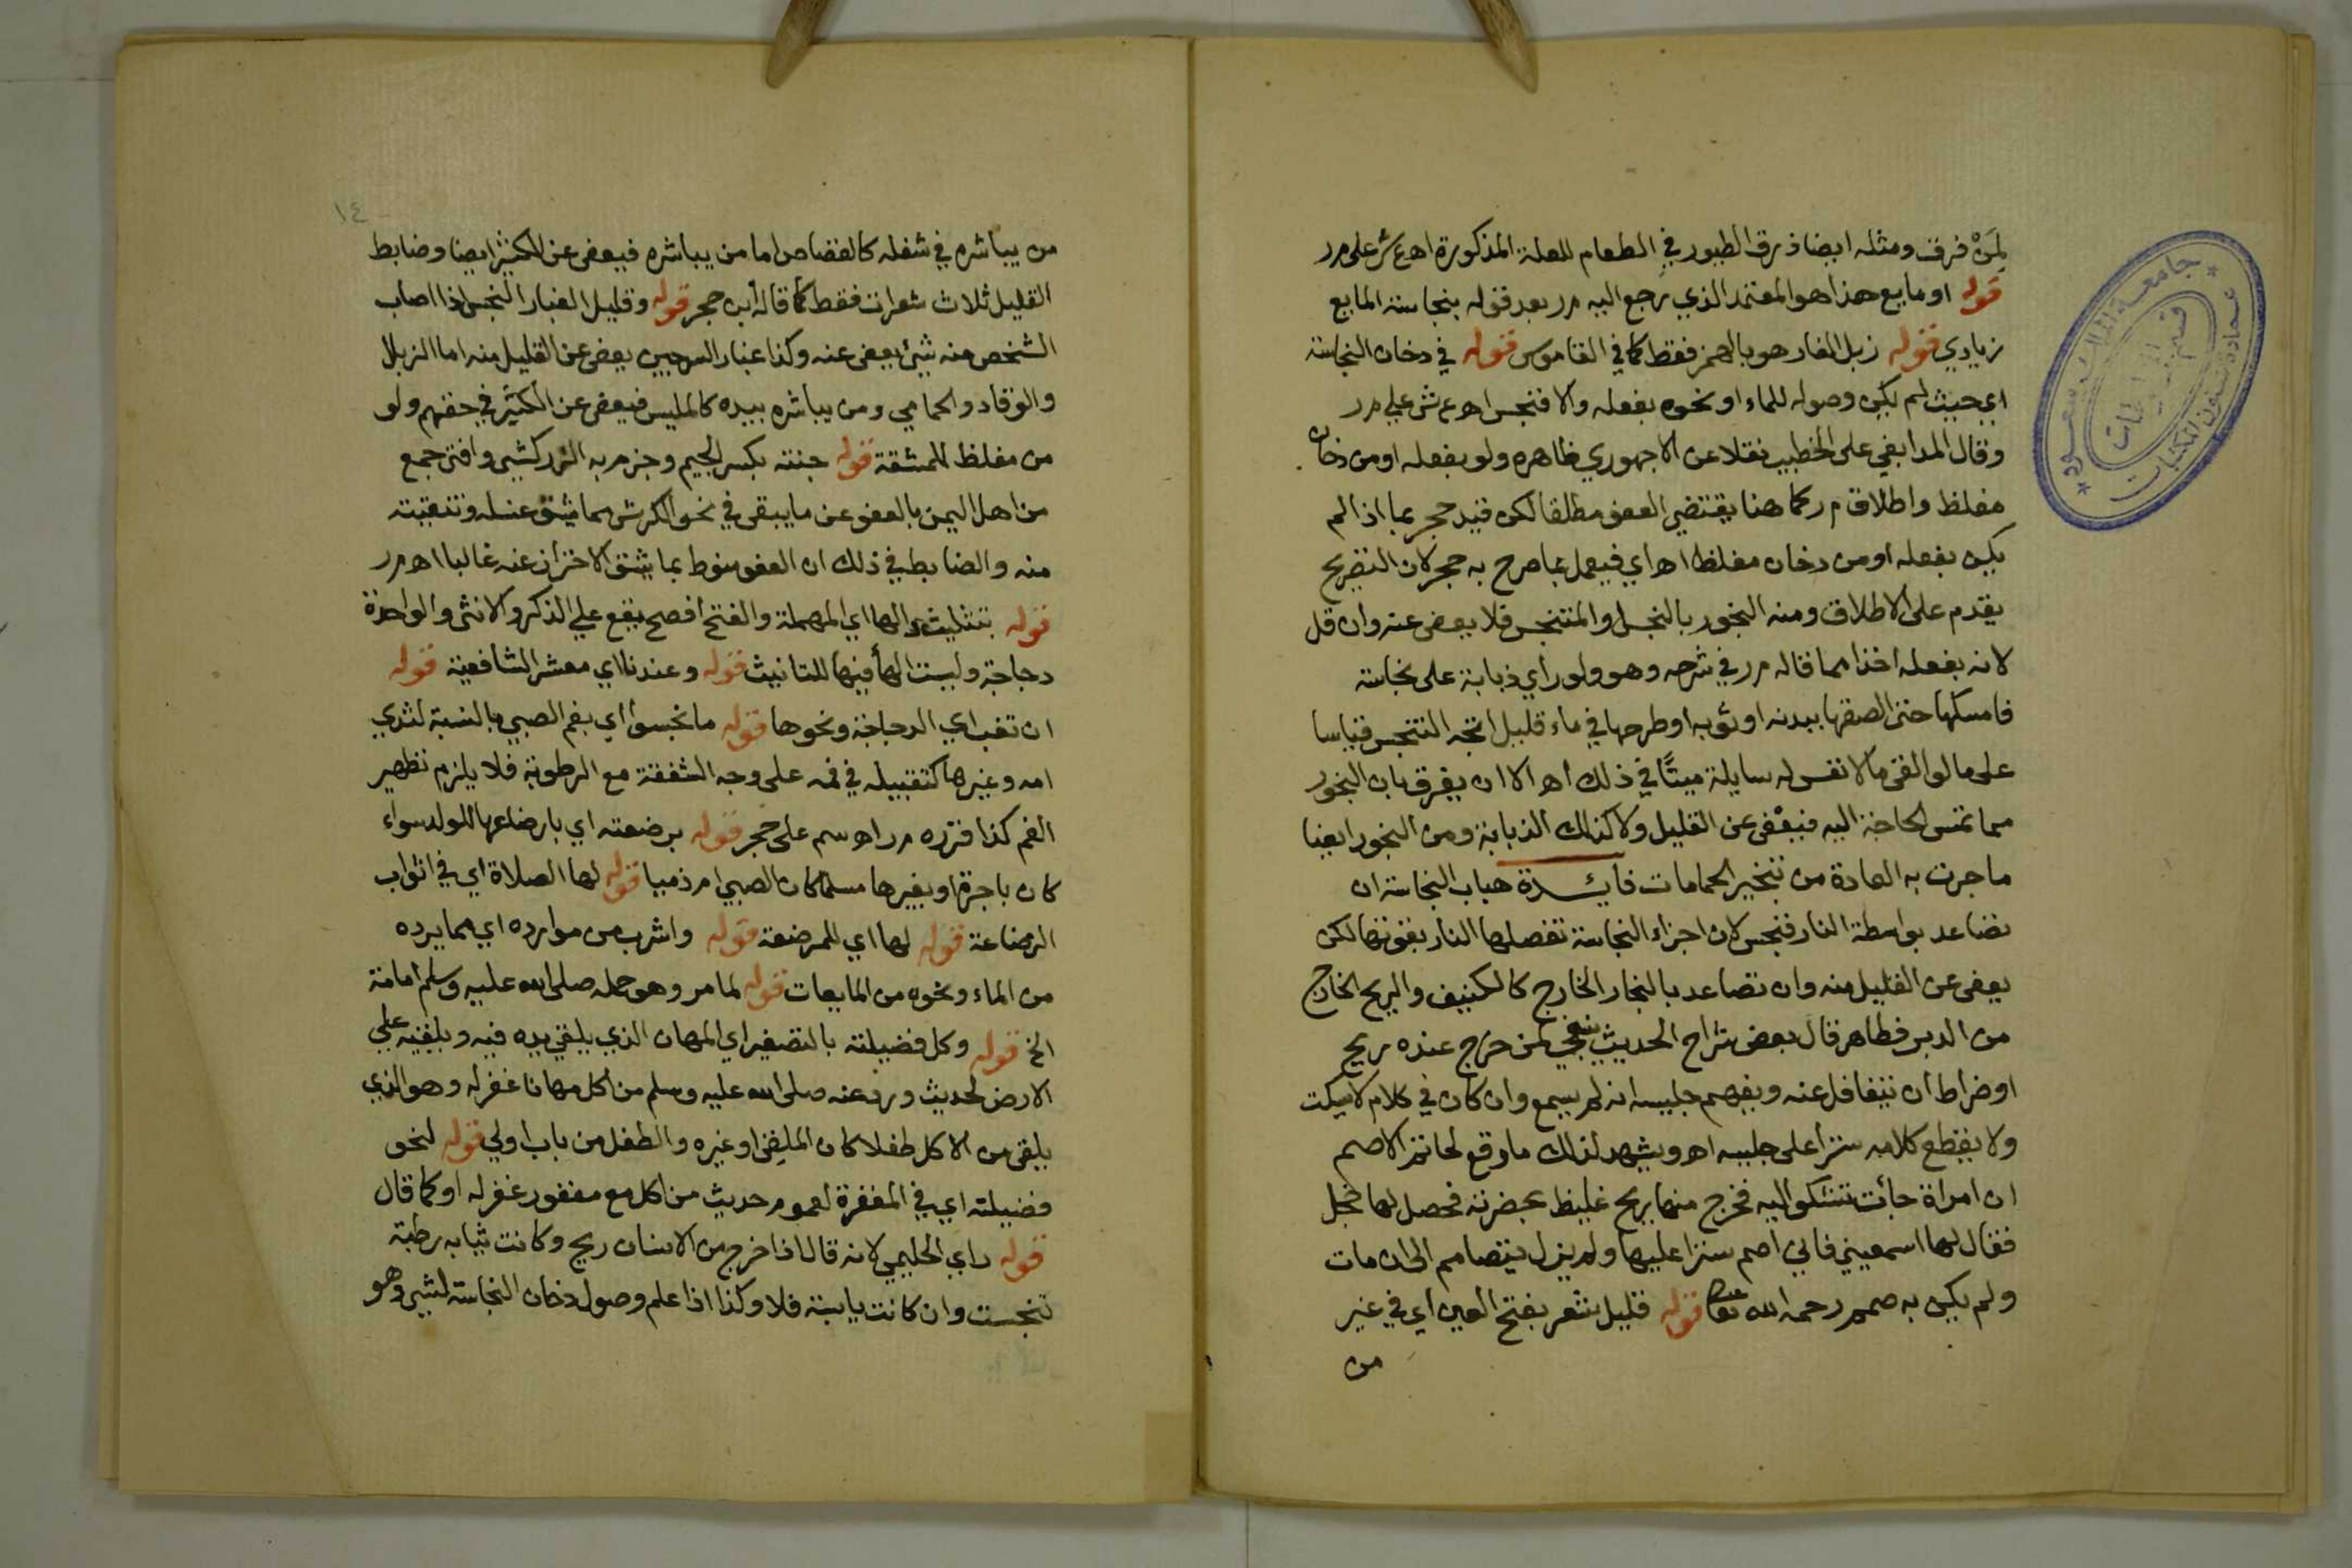 لمن فرق ومثله ايضا ذرق الطيور في الطعام للعلة المذكورة اهع ش على م ر
قوله او مايع هذا هو المعتمد الذي رجع اليه م ر بعد قوله بنجاسة المايع
زيادي قوله زبل الفار هو بالهمز فقط كما في القاموس قوله في دخان النجاسة
اي حيث لم يكن وصوله للماء او نحوه بفعله والا فنجس اهع ش علي م ر
وقال المدابغي على الخطيب نقلا عن الاجهوري ظاهره ولو بفعله او من دخان
مغلظ واطلاق م ر كما هنا يقتضي العفو مطلقا لكن قيد حجر بما اذا لم
يكن بفعله او من دخان مغلظ اه اي فيعمل بما صرح به حجر لان التصريح
يقدم على الاطلاق ومنه البخور بالنجس او المتنجس فلا يعفى عنه وان قل
لانه بفعله اخذا مما قاله م ر في شرحه وهو ولو راي ذبابة على نجاسة
فامسكها حتى الصقها ببدنه او ثوبه او طرحها في ماء قليل اتجه التنجس قياسا
على ما لو القى ما لا نفس له سايلة ميتًا في ذلك اه الا ان يفرق بان البخور
مما تمس الحاجة اليه فيعْفى عن القليل ولا كذلك الذبابة ومن البخور ايضا
ما جرت به العادة من تبخير الحمامات فايدة هباب النجاسة ان
تصاعد بواسطة النار فنجس لان اجزاء النجاسة تفصلها النار بقوتها لكن
يعفى عن القليل منه وان تصاعد بالبخار الخارج كالكنيف والريح الخارج
من الدبر فطاهر قال بعض شراح الحديث ينبغي لمن خرج عنده ريح
او ضراط ان يتغافل عنه ويفهم جليسه انه لم يسمع وان كان في كلام لا يسكت
ولا يقطع كلامه سترا على جليسه اه ويشهد لذلك ما وقع لحاتم الاصم
ان امراة جأت تشكوا اليه فخرج منها ريح غليظ بحضرته فحصل لها خجل
فقال لها اسمعيني فاني اصم سترا عليها ولم يزل يتصامم الى ان مات
ولم يكن به صمم رحمه الله تعالى قوله قليل شعر بفتح العين اي في غير
من
١٤
من يباشره في شغله كالقصاص اما من يباشره فيعفى عن الكثير ايضا وضابط
القليل ثلاث شعرات فقط كما قاله ابن حجر قوله وقليل الغبار النجس اذا اصاب
الشخص منه شيئ يعفى عنه وكذا غبار السرجين يعفى عن القليل منه اما الزبال
والوقاد والحمامي ومن يباشره بيده كالمليس فيعفى عن الكثير في حقهم ولو
من مغلظ للمشقة قوله جنته بكسر الجيم وجزم به الزركشي وافتى جمع
من اهل اليمن بالعفو عن ما يبقى في نحو الكرش مما يشق غسله وتنقيته
منه والضابط في ذلك ان العفو منوط بما يشق الاحتراز عنه غالبا اه م ر
قوله بتثليث دالها اي المهملة والفتح افصح يقع علي الذكر والانثى والواحدة
دجاجة وليست الهأ فيها للتانيث قوله وعندنا اي معشر الشافعية قوله
ان تعب اي الدجاجة ونحوها قوله ما نجسوا اي بفم الصبي بالنسبة لثدي
امه وغيرها كتقبيله في فمه على وجه الشفقة مع الرطوبة فلا يلزم تطهير
الفم كذا قرره م ر اه سم على حجر قوله برضعته اي بارضاعها للولد سواء
كان باجرة او بغيرها مسلما كان الصبي ام ذميا قوله لها الصلاة اي في اثواب
الرضاعة قوله لها اي للمرضعة قوله واشرب من موارده اي مما يرده
من الماء ونحوه من المايعات قوله لما مر وهو حمله صلى الله عليه وسلم امامة
الخ قوله وكل فضيلته بالتصغير اي المهان الذي يلقي يده فيه ويلقيه علي
الارض لحديث ورد عنه صلى الله عليه وسلم من اكل مهانا غفر له وهو الذي
يلقى من الاكل طفلا كان الملقي او غيره والطفل من باب اولي قوله لنحو
فضيلته اي في المغفرة لعموم حديث من اكل مع مغفور غفر له او كما قال
قوله راي الحليمي لانه قال اذا خرج من الانسان ريح وكانت ثيابه رطبة
تنجست وان كانت يابسة فلا وكذا اذا علم وصول دخان النجاسة لشيي وهو
جامعة الملك سعود
عمادة شؤون المكتبات
قسم المخطوطات